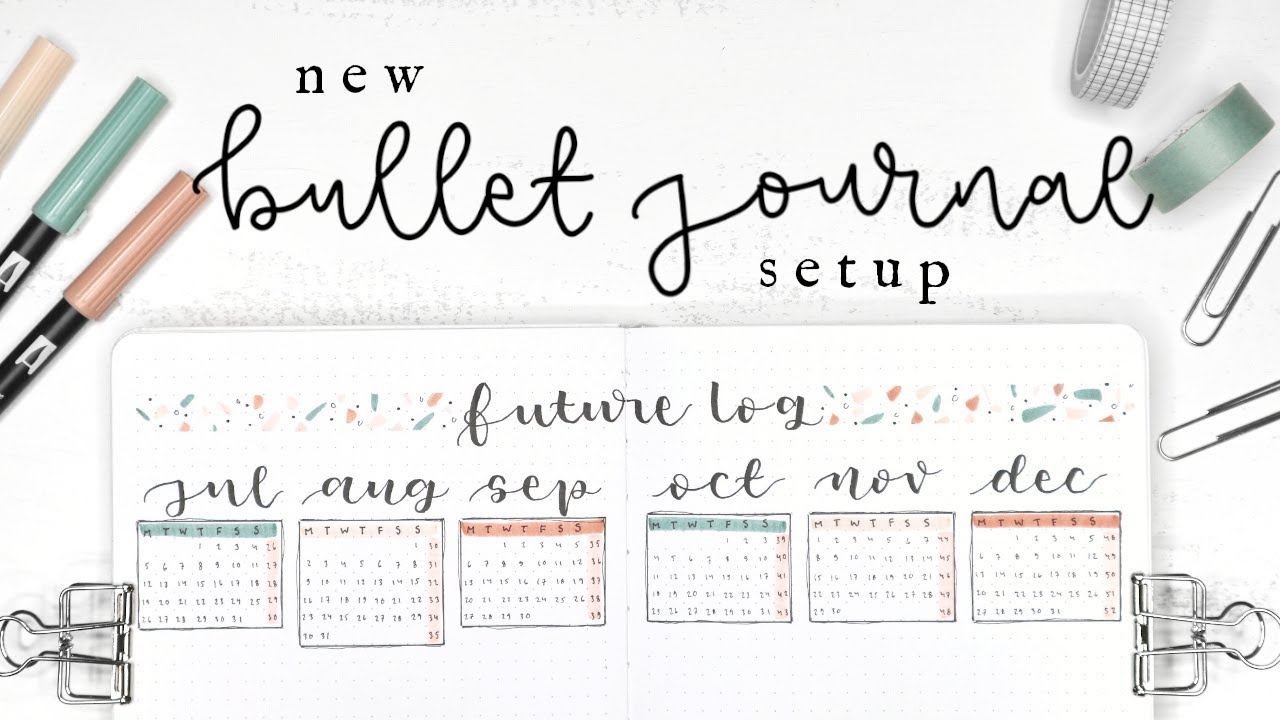 new
bullet journal
setup
future log
jul
M T W T F S S
1 2 3 4 26
5 6 7 8 9 10 11 27
12 13 14 15 16 17 18 28
19 20 21 22 23 24 25 29
26 27 28 29 30 31 30
aug
M T W T F S S
1 30
2 3 4 5 6 7 8 31
9 10 11 12 13 14 15 32
16 17 18 19 20 21 22 33
23 24 25 26 27 28 29 34
30 31 35
sep
M T W T F S S
1 2 3 4 5 35
6 7 8 9 10 11 12 36
13 14 15 16 17 18 19 37
20 21 22 23 24 25 26 38
27 28 29 30 39
oct
M T W T F S S
1 2 3 39
4 5 6 7 8 9 10 40
11 12 13 14 15 16 17 41
18 19 20 21 22 23 24 42
25 26 27 28 29 30 31 43
nov
M T W T F S S
1 2 3 4 5 6 7 44
8 9 10 11 12 13 14 45
15 16 17 18 19 20 21 46
22 23 24 25 26 27 28 47
29 30 48
dec
M T W T F S S
1 2 3 4 5 48
6 7 8 9 10 11 12 49
13 14 15 16 17 18 19 50
20 21 22 23 24 25 26 51
27 28 29 30 31 52
A
A